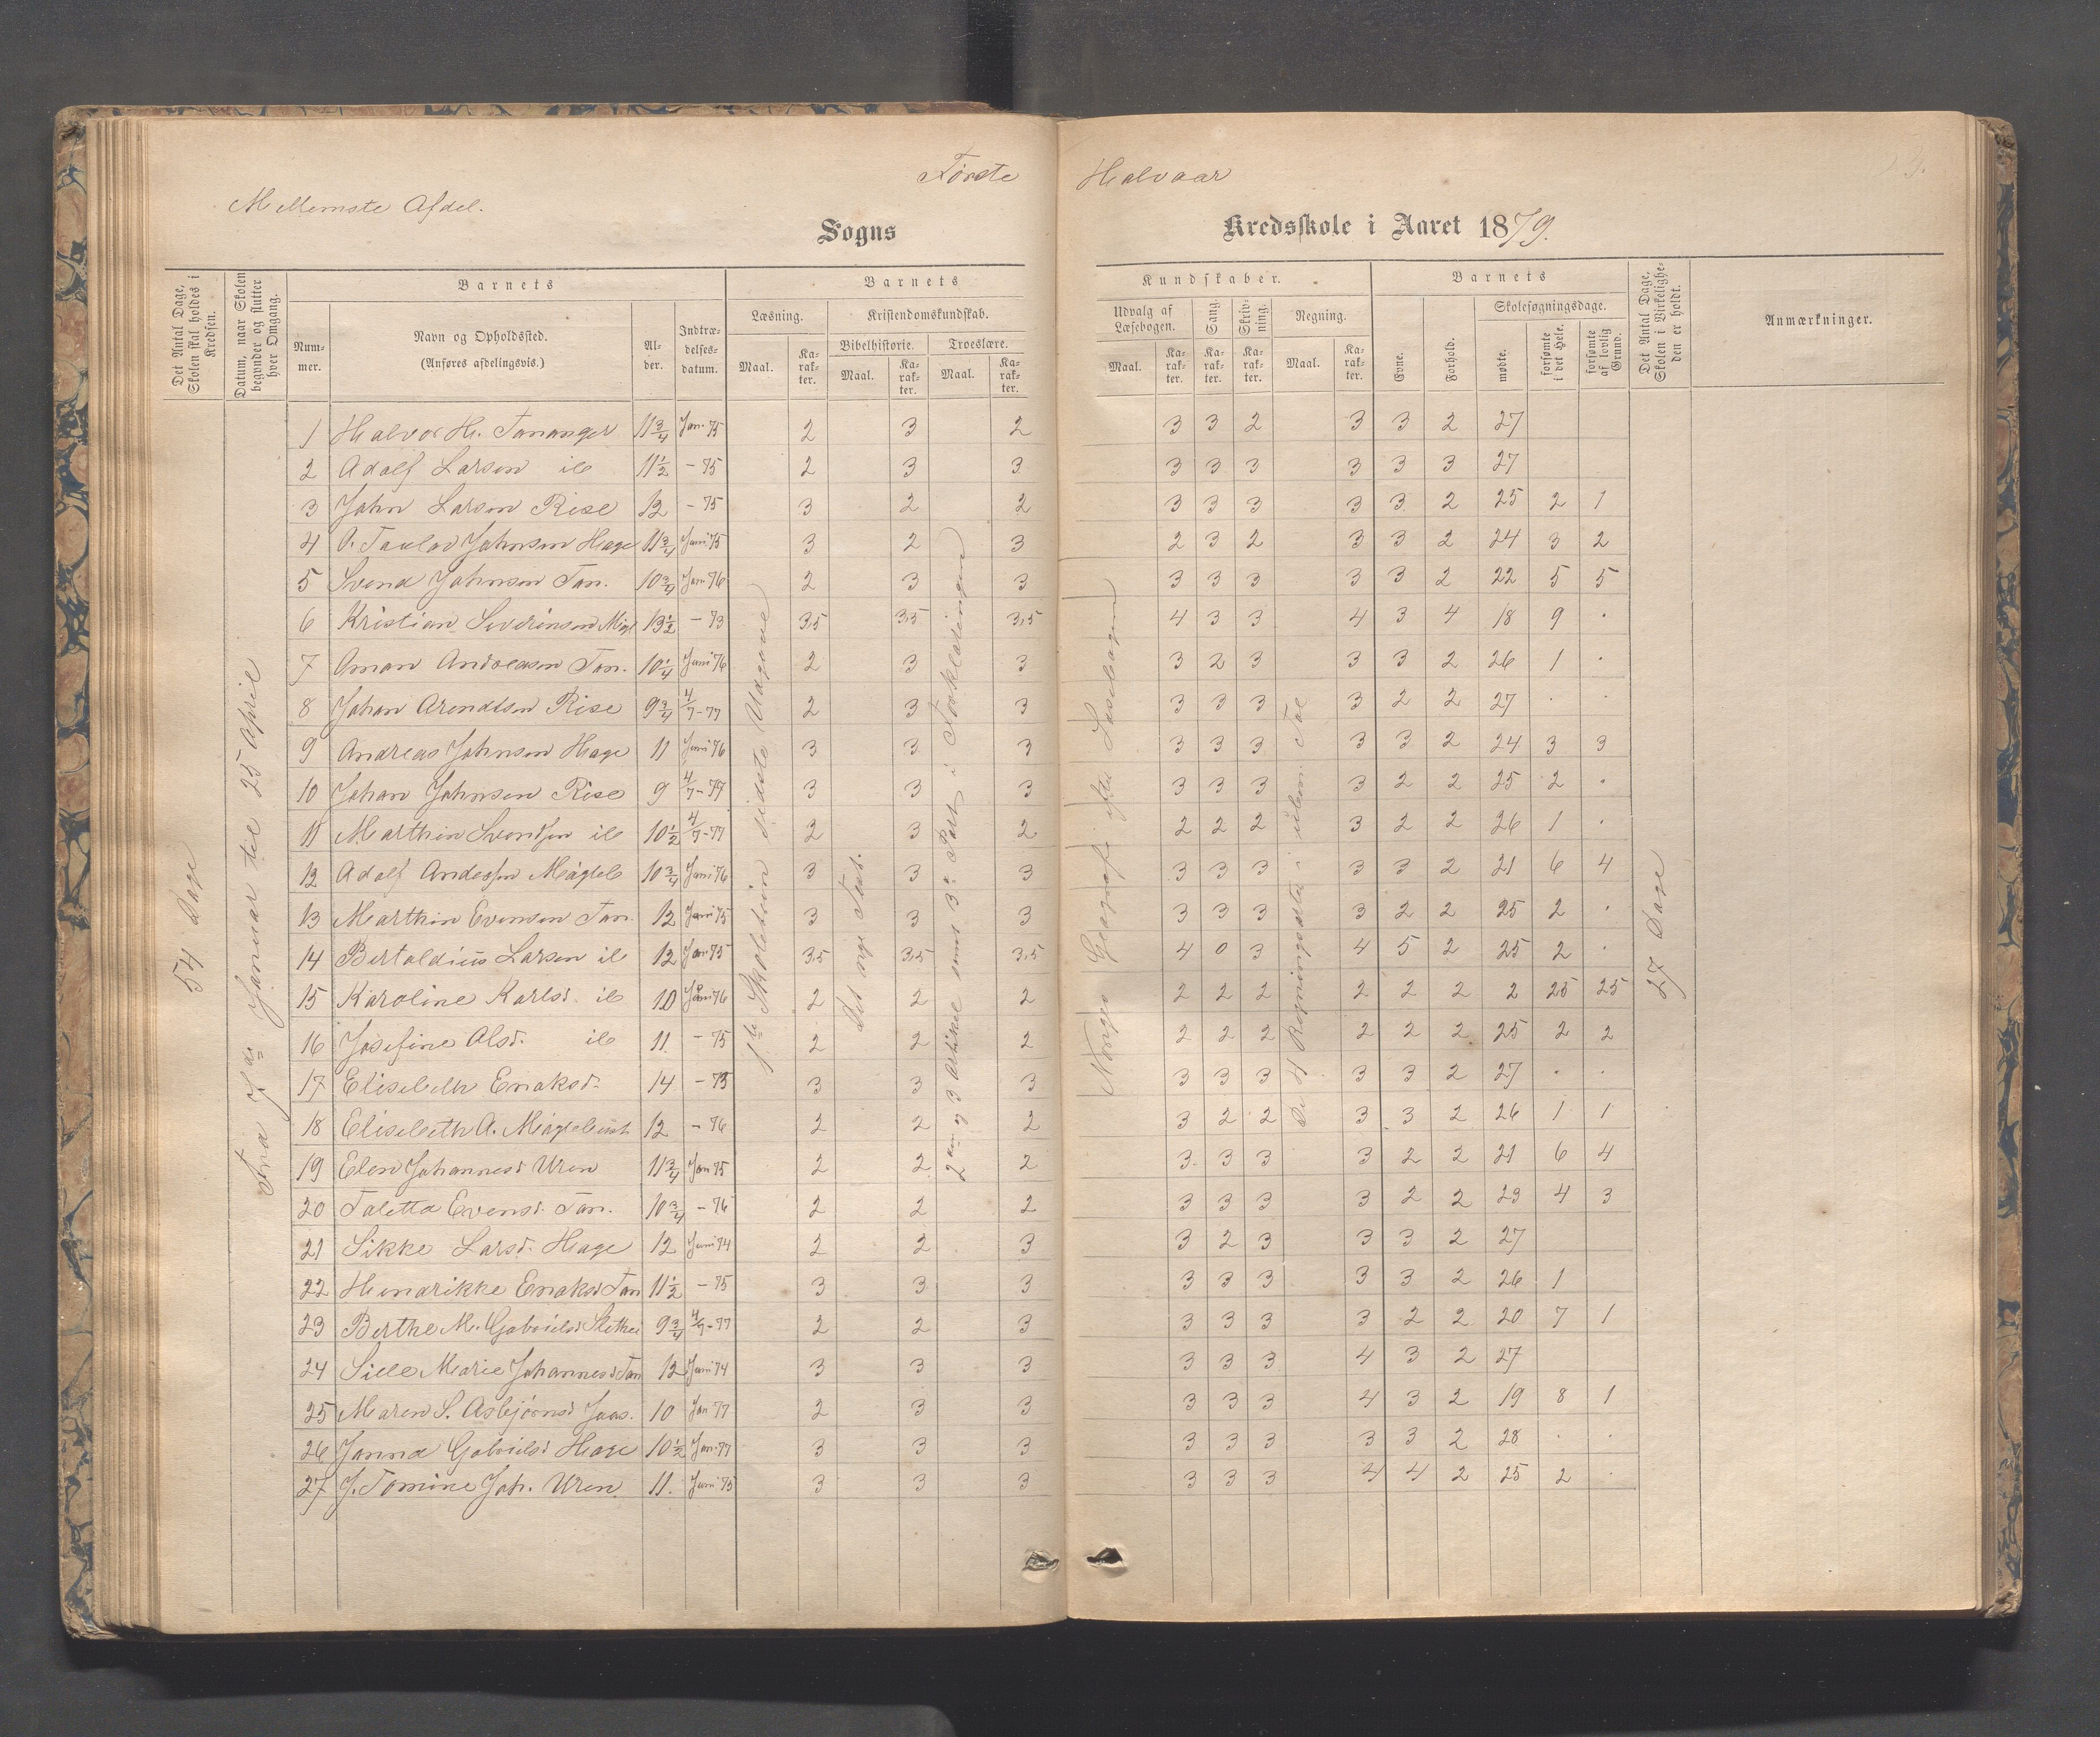 Første Halvaar
3.
Mellemste Afdel.
Sogns Kredsskole i Aaret 1879.
Det Antal Dage, Skolen skal holdes i Kredsen.
Datum, naar Skolen begynder og slutter hver Omgang.
Barnets
Num-mer.
Navn og Opholdssted. (Anføres afdelingsvis.)
Al-der.
Indtræ-delses-datum.
Barnets Kundskaber.
Læsning.
Kristendomskundskab.
Bibelhistorie.
Troeslære.
Maal. Ka-rak-ter. Maal. Ka-rak-ter. Maal. Ka-rak-ter.
Udvalg af Læsebogen.
Sang.
Skriv-ning.
Regning.
Maal. Ka-rak-ter. Ka-rak-ter. Ka-rak-ter. Maal. Ka-rak-ter.
Barnets
Evne.
Forhold.
Skolesøgningsdage.
mødte.
forsømte i det Hele.
forsømte af lovlig Grund.
Det Antal Dage, Skolen i Virkelighe-den er holdt.
Anmærkninger.
54 Dage
Fra 7de Januar til 25 April
1ste Skoletrin sidste Udgave
Det nye Test.
2den og 3 Artikel samt 3die Part i Forklaringen
Norges Geografi efter Læsebogen
De 4 Regningsarter i uben. Tal
27 Dage
1 Halvor H. Tananger 11 3/4 Jan 75 2 3 2 3 3 2 3 3 2 27
2 Adolf Larsen ib 11 1/2 - 75 2 3 3 3 3 3 3 3 3 27
3 John Larsen Risa 12 - 75 3 2 2 3 3 3 3 3 2 25 2 1
4 Johnsen Hage 11 3/4 Juni 75 3 2 3 2 3 2 3 3 2 24 3 2
5 Svend Johnsen Tan. 10 3/4 Jan 76 2 3 3 3 3 3 3 3 2 22 5 5
6 Kristian Severinsen 13 1/2 - 73 3,5 3,5 3,5 4 3 3 4 3 4 18 9 .
7 Oman Andreasen Tan. 10 1/4 Juni 76 2 3 3 3 2 3 3 3 2 26 1 .
8 Johan Arendtsen Rise 9 3/4 4/7-77 2 3 3 3 3 3 3 2 2 27 . .
9 Andreas Johnsen Hage 11 Juni 76 3 3 3 3 3 3 3 3 2 24 3 3
10 Johan Johnsen Rise 9 4/7-77 3 3 3 3 3 3 3 2 2 25 2 .
11 Marthin Svendsen ib 10 1/2 4/7-77 2 3 2 2 2 2 3 2 2 26 1 .
12 Adolf Andersen Mågleb 10 3/4 Juni 76 3 3 3 3 3 3 3 3 2 21 6 4
13 Marthin Evensen Tan. 12 Juni 75 3 3 3 3 3 3 3 2 2 25 2 .
14 Bertoldius Larsen ib 12 Jan 75 3,5 3,5 3,5 4 0 3 4 5 2 25 2 .
15 Karoline Karlsd. ib 10 76 2 2 2 2 2 2 2 2 2 2 25 25
16 Josefine Olsd. ib 11. - 75 2 2 2 2 2 2 2 2 2 25 2 2
17 Elisebeth Enoksd. 14 - 73 3 3 3 3 3 3 3 3 2 27 . .
18 Elisebeth A. 12 - 76 2 2 2 3 2 2 3 3 2 26 1 1
19 Elen Johannesd Uren 11 3/4 Jan 75 2 2 2 3 3 3 3 2 2 21 6 4
20 Taletta Evensd. Tan. 10 3/4 - 76 2 2 2 3 3 3 3 2 2 23 4 3
21 Sikke Larsd. Hage 12 Juni 74 2 2 3 3 2 3 3 3 2 27
22 Henrikke Enoksd Tan 11 1/2 - 75 3 3 3 3 3 3 3 3 2 26 1
23 Berthe M. Gabrielsd 9 3/4 4/7-77 2 2 3 3 3 3 3 2 2 20 7 1
24 Sille Marie Johannesd Tan 12 Juni 74 3 3 3 3 3 3 4 3 2 27
25 Maren S. Asbjørnsd Jaas. 10 Jan 77 2 3 3 3 3 3 4 3 2 19 8 1
26 Janna Gabrielsd Hage 10 1/2 Jan. 77 3 3 3 3 3 3 3 3 2 28 . .
27 J. Tomine Joh. Uren 11. Juni 75 3 3 3 3 3 3 4 4 2 25 2 .